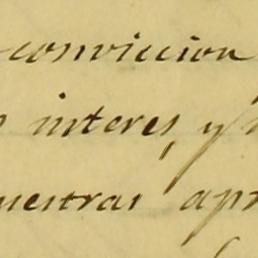 conviccion
interes, y
nuestras apr